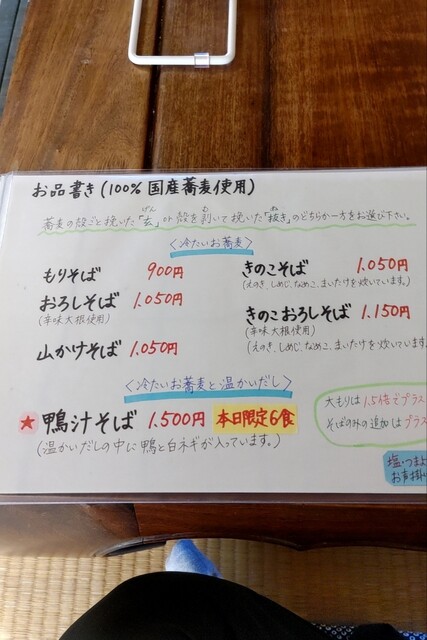 お品書き(100%国産蕎麦使用)
蕎麦の殻ごと挽いた「玄」or殻を剥いて挽いた「抜き」のどちらか一方をお選び下さい。
げん
む
ぬ
<冷たいお蕎麦>
もりそば 900円
おろしそば 1.050円
(辛味大根使用)
山かけそば 1.050円
きのこそば 1.050円
(えのき、しめじ、なめこ、まいたけを炊いています。)
きのこおろしそば 1.150円
(辛味大根使用)
(えのき、しめじ、なめこ、まいたけを炊いています
<冷たいお蕎麦と温かいだし>
★鴨汁そば 1.500円 本日限定6食
(温かいだしの中に鴨と白ネギが入っています。)
大もりは1.5倍でプラス
そばのみの追加はプラス
塩・つまよ
お声掛